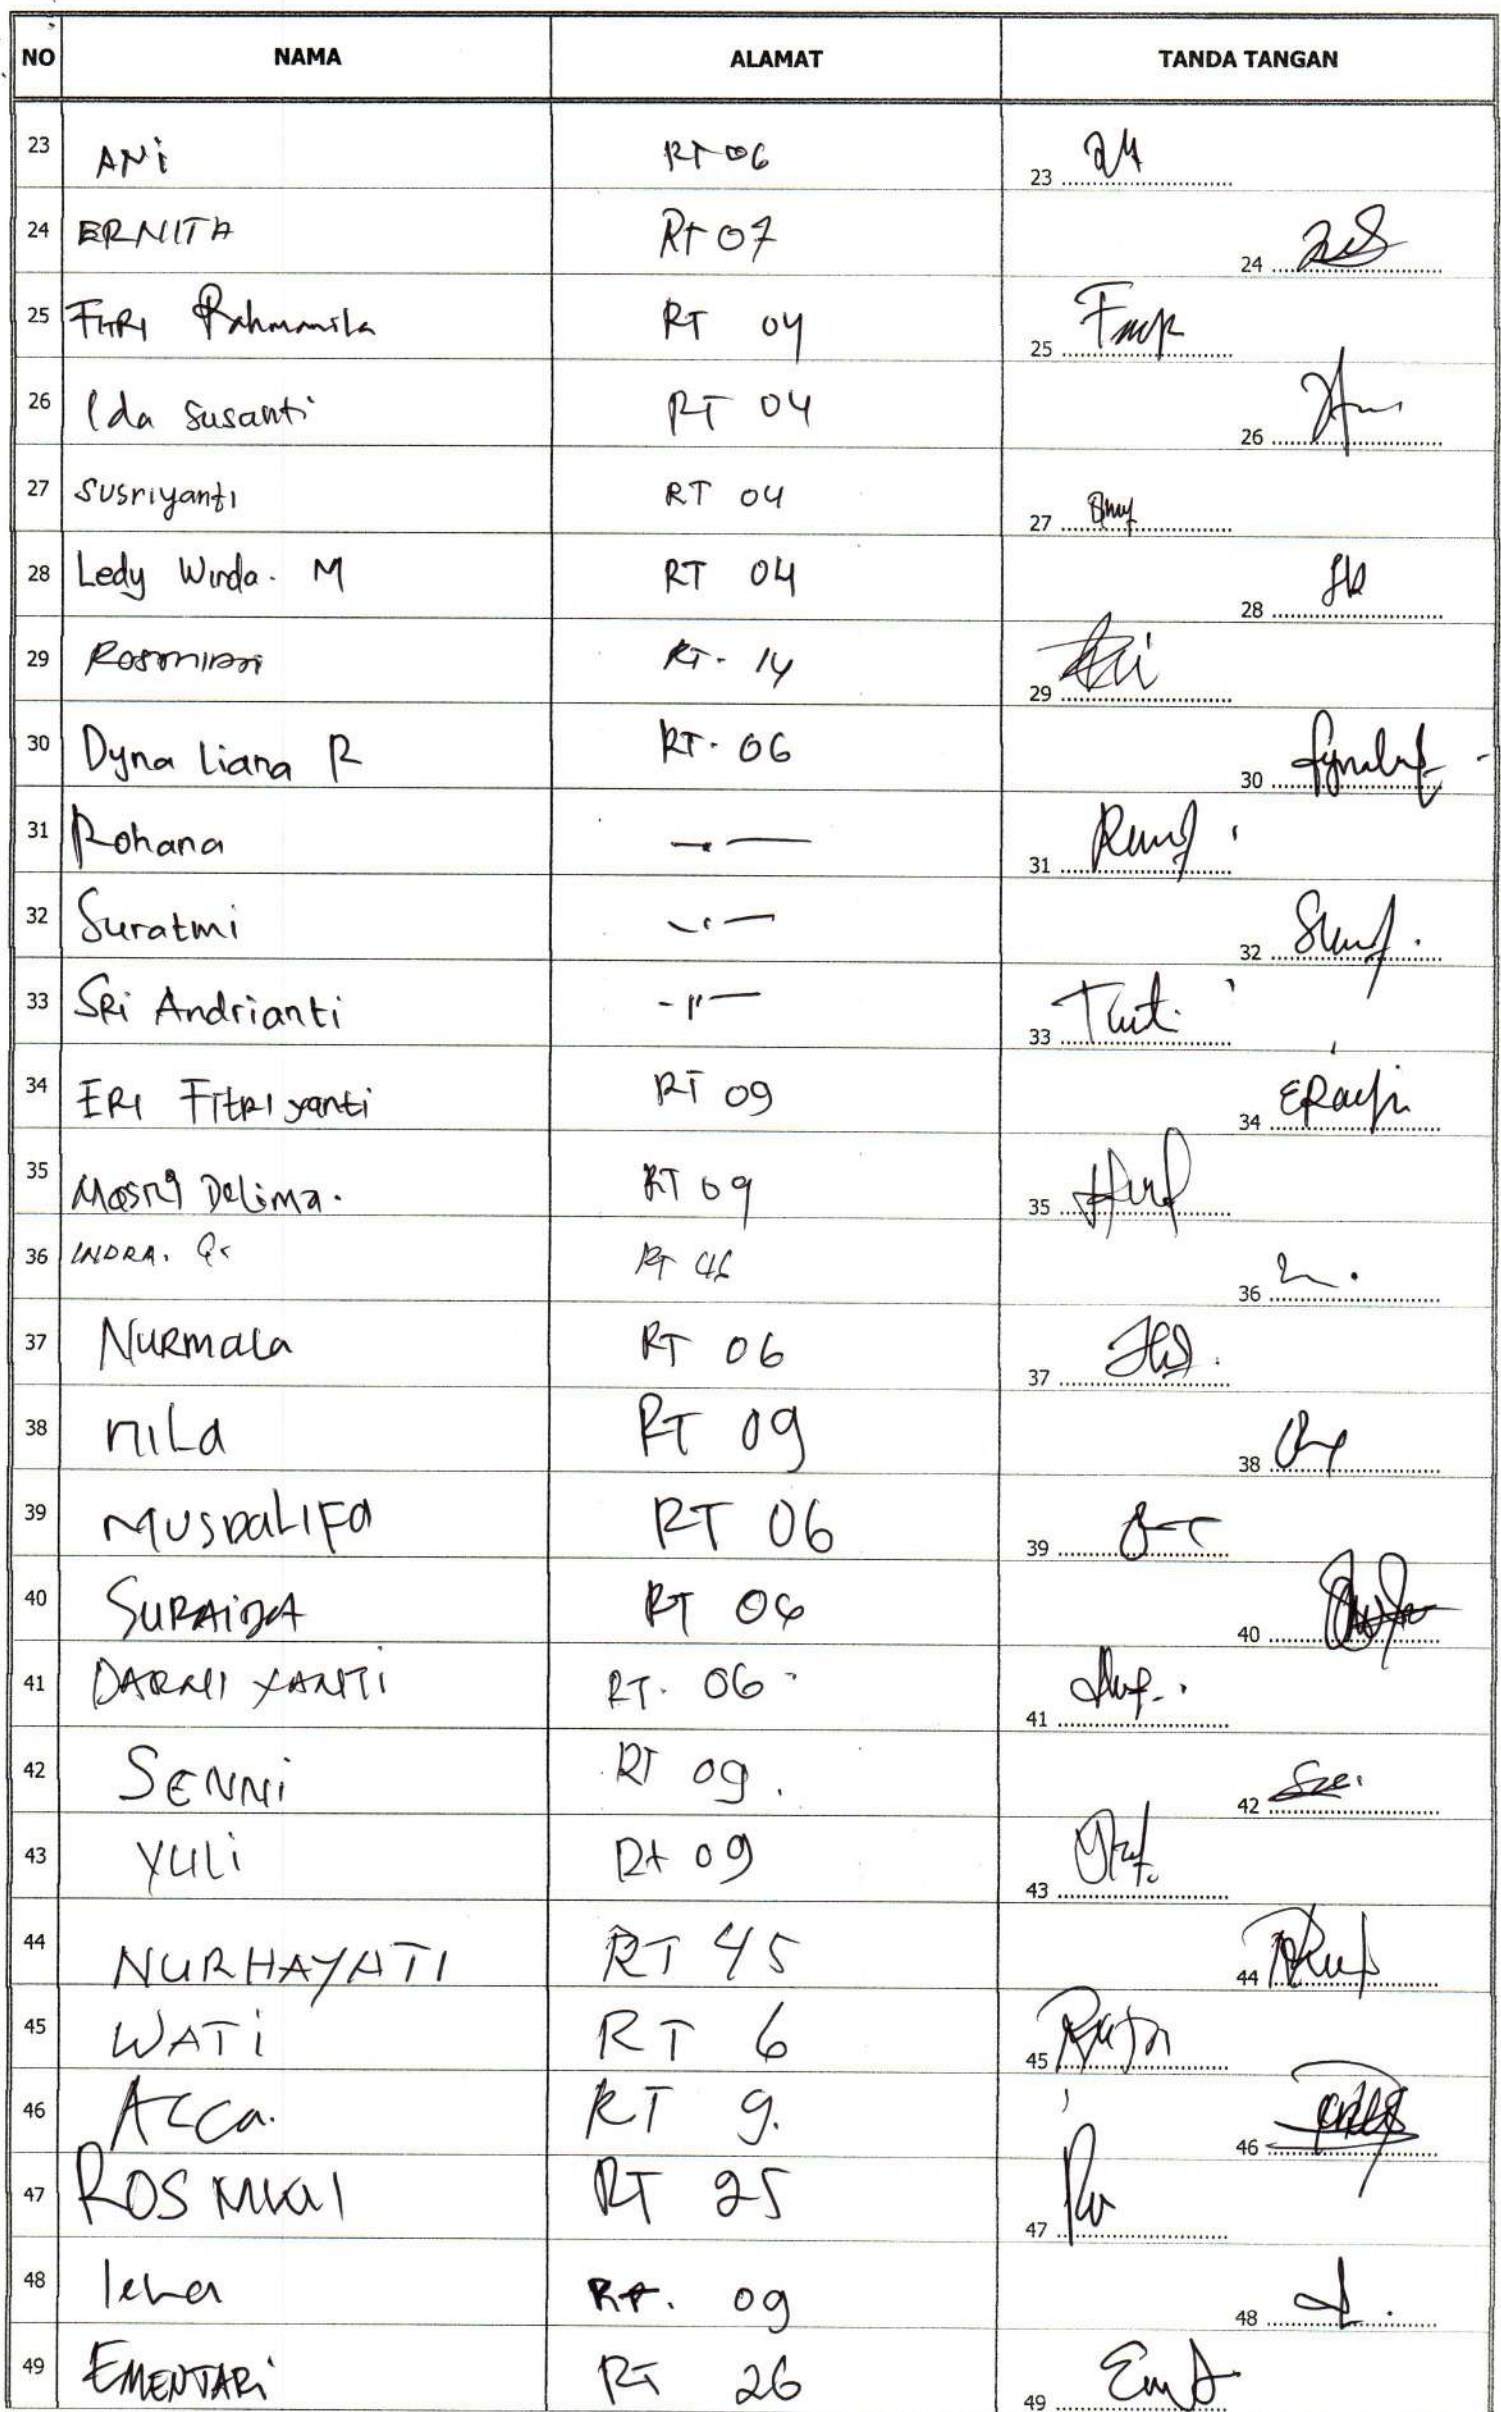 NO NAMA ALAMAT TANDA TANGAN
23 ANi RT 06 23
24 ERNITA Rt 07 24
25 FITRI Rahmanila RT 04 25
26 Ida Susanti RT 04 26
27 Susriyanti RT 04 27
28 Ledy Winda. M RT 04 28
29 RT. 14 29
30 Dyna Liana R RT. 06 30
31 Rohana 31
32 Suratmi 32
33 SRi Andrianti - " — 33
34 ERI FitRiyanti RT 09 34
35 Masni Delima. RT 09 35
36 INDRA. RT 46 36
37 NURMaLa RT 06 37
38 niLa RT 09 38
39 MUSDALIFA RT 06 39
40 SURAiDA RT 06 40
41 DARMI YANTI RT. 06 41
42 SENNi RT 09. 42
43 YULi Rt 09 43
44 NURHAYATI RT 45 44
45 WATi RT 6 45
46 Acca. RT 9. 46
47 RT 25 47
48 lena RT. 09 48
49 EMENTARi RT 26 49